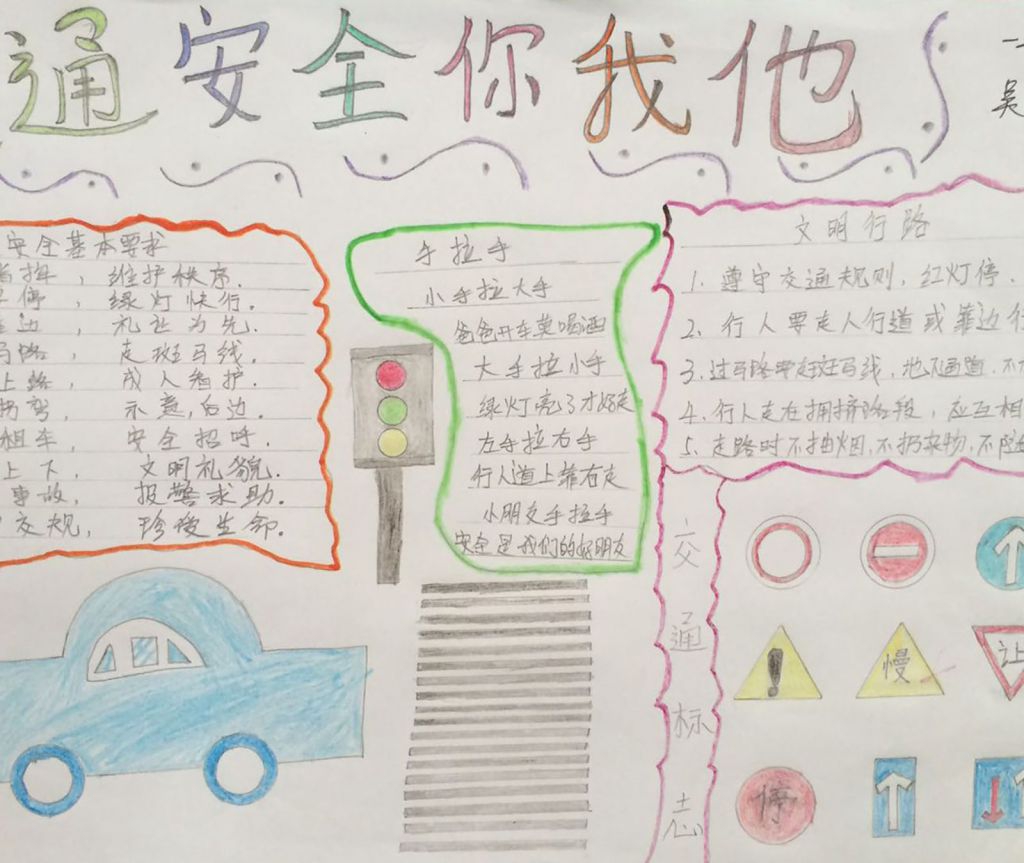 通安全你我他
吴
安全基本要求
, 维护秩序.
停, 绿灯快行.
边, 礼让为先.
马路, 走斑马线.
上路, 成人看护.
拐弯, 示意,右边.
租车, 安全招呼.
上下, 文明礼貌.
事故, 报警求助.
交规, 珍爱生命.
手拉手
小手拉大手
爸爸开车莫喝酒
大手拉小手
绿灯亮了才好走
左手拉右手
行人道上靠右走
小朋友手拉手
安全是我们的好朋友
文明行路
1. 遵守交通规则, 红灯停.
2. 行人要走人行道或靠边行
3. 过马路要走斑马线, 地下通道, 不
4. 行人走在拥挤阶段, 应互相
5. 走路时不抽烟, 不扔杂物, 不随
交通标志
慢
让
停